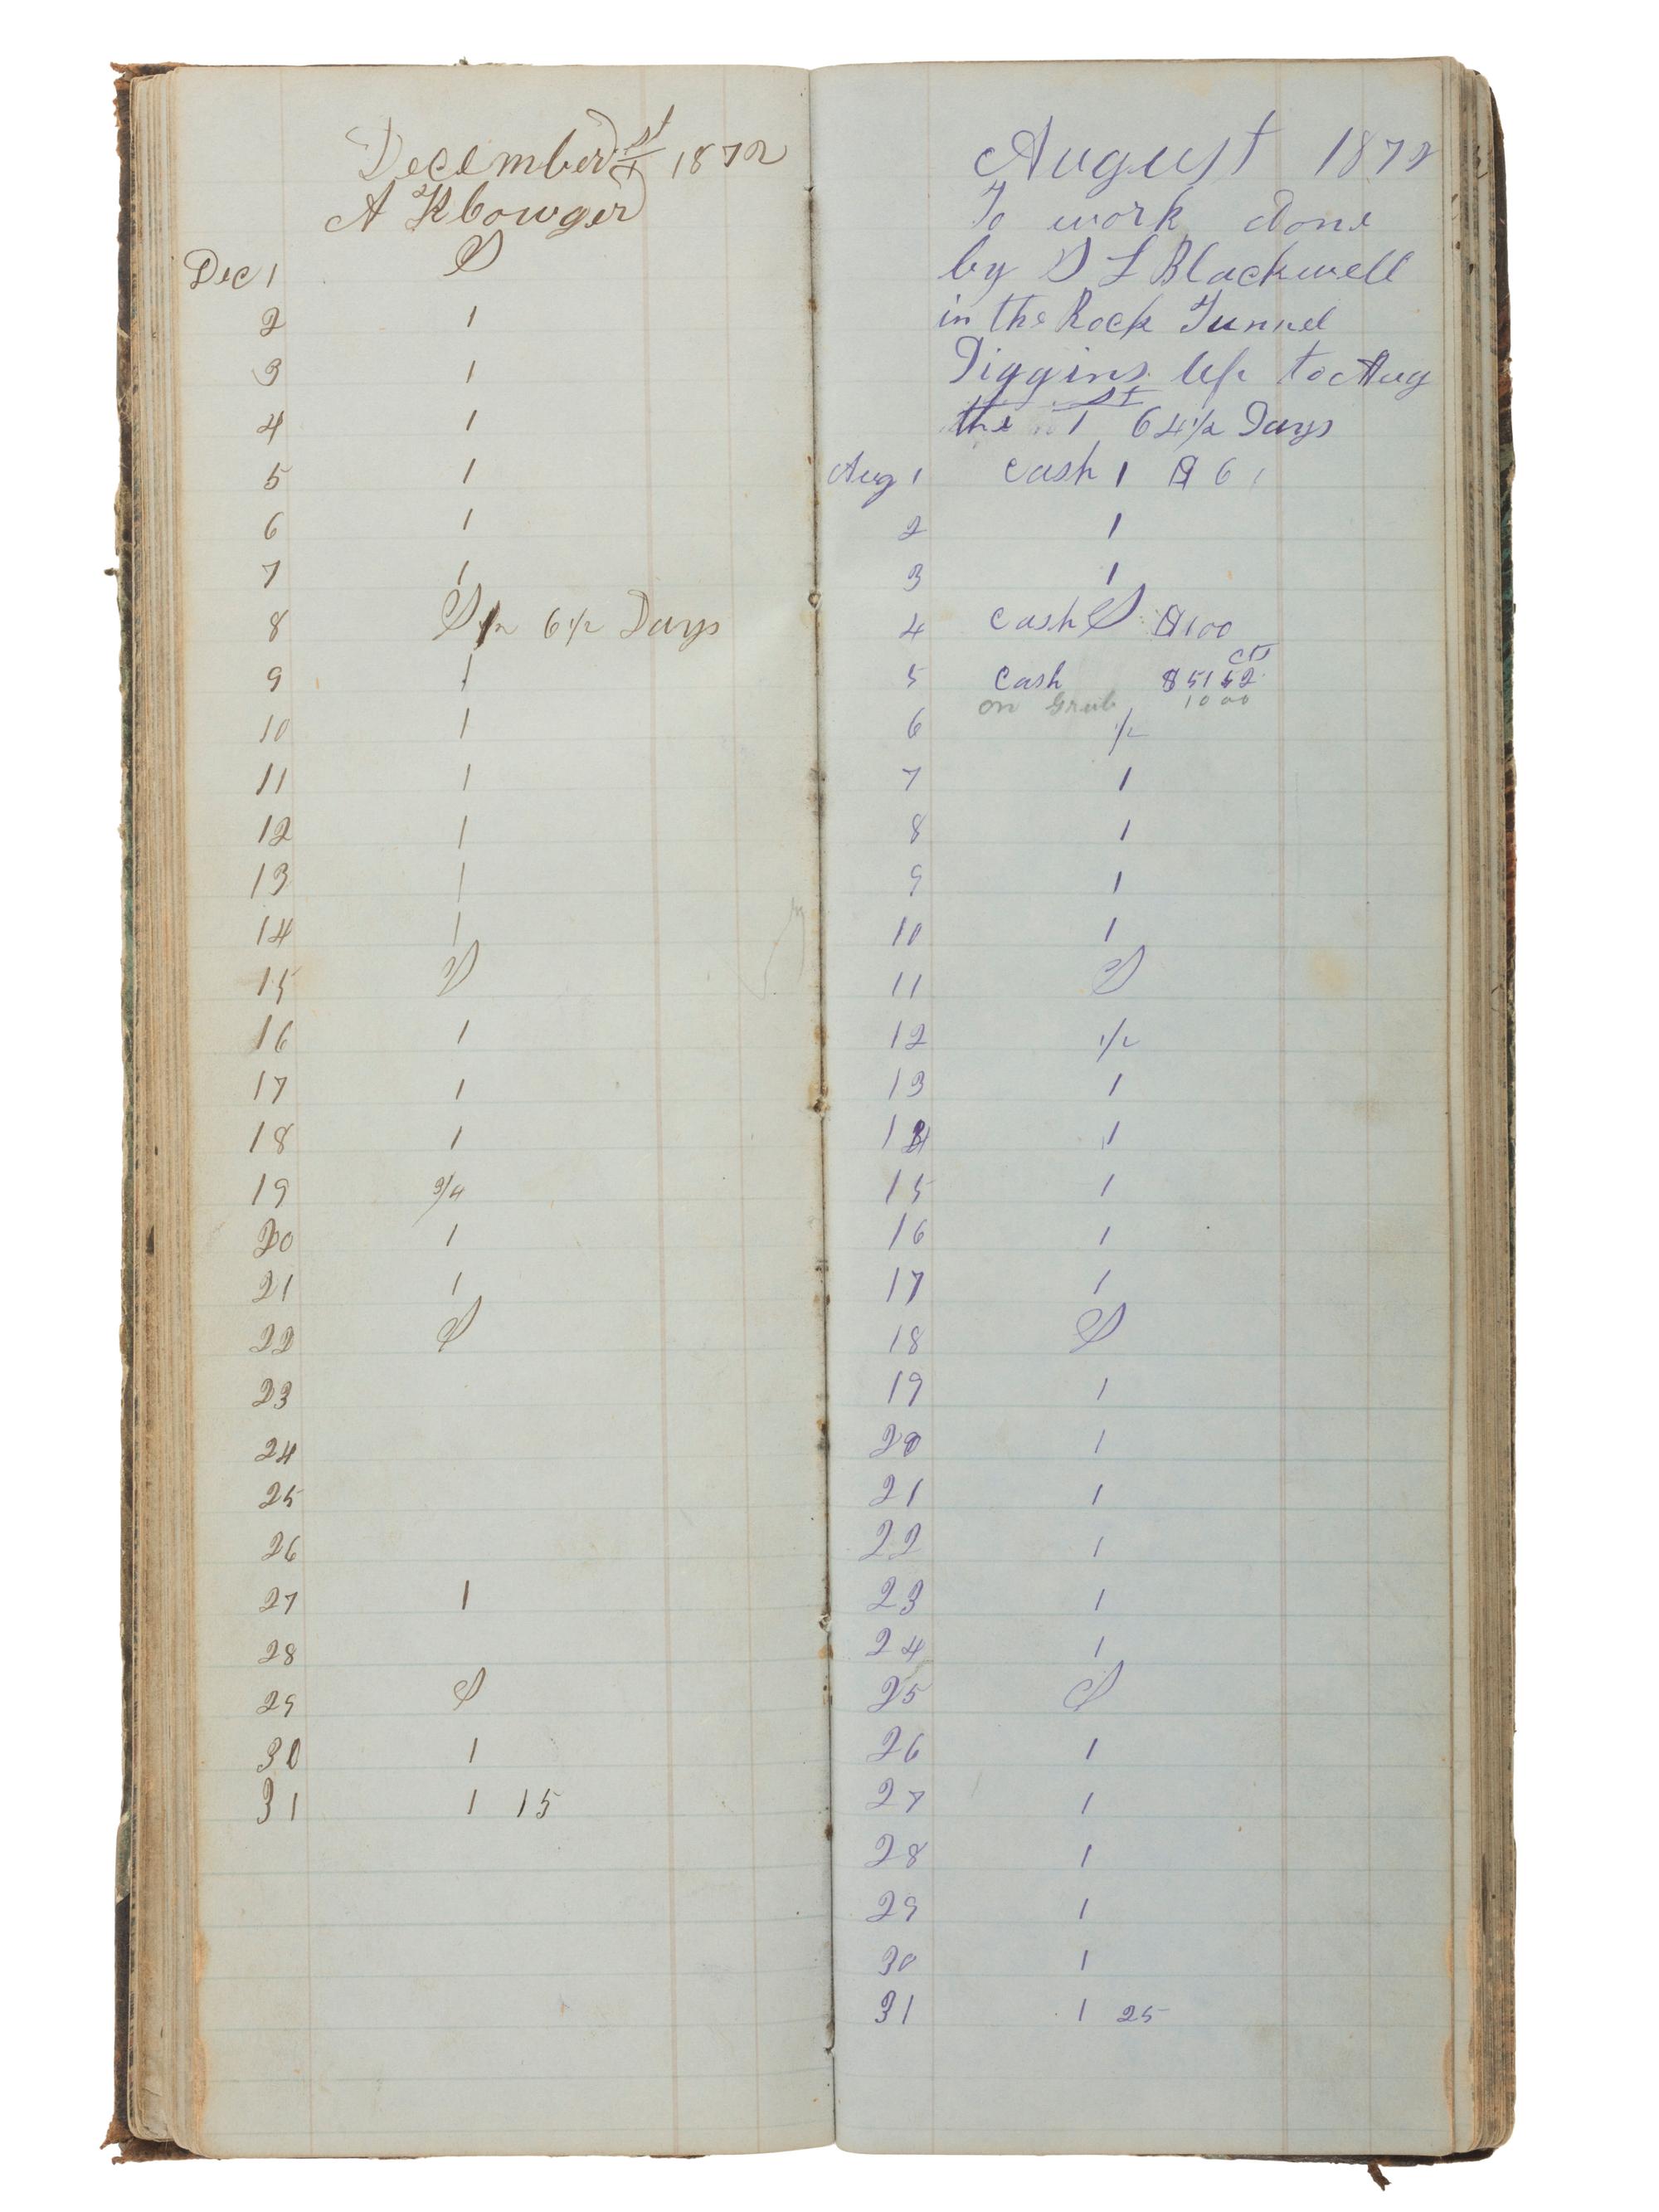 December 1st 1872
A K Cowger
Dec 1 S
2 1
3 1
4 1
5 1
6 1
7 1
8 S 6 1/2 Days
9 1
10 1
11 1
12 1
13 1
14 1
15 S
16 1
17 1
18 1
19 3/4
20 1
21 1
22 S
23
24
25
26
27 1
28
29 S
30 1
31 1 15
August 1872
To work done
by S L Blackwell
in the Rock Tunnel
Diggins Up to Aug
the 1st 64 1/2 Days
Aug 1 Cash 1 $ 6
2 1
3 1
4 Cash S $100
cts
5 Cash $51 52
on Grub 10 00
6 1/2
7 1
8 1
9 1
10 1
11 S
12 1/2
13 1
14 1
15 1
16 1
17 1
18 S
19 1
20 1
21 1
22 1
23 1
24 1
25 S
26 1
27 1
28 1
29 1
30 1
31 1 25